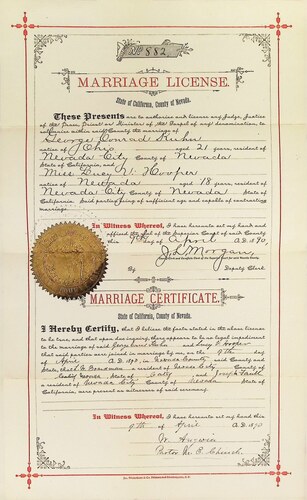 No. 882.
MARRIAGE LICENSE.
State of California, County of Nevada.
These Presents are to authorize and license any Judge, Justice
of the Peace, Priest or Minister of the Gospel of any denomination, to
solemnize within said County the marriage of
George Conrad
native of Ohio aged 21 years, resident of
Nevada City County of Nevada
State of California, and
Miss Lucy V. Hooper
native of Nevada aged 18 years, resident of
Nevada City County of Nevada State of
California. Said parties being of sufficient age and capable of contracting
marriage.
In Witness Whereof, I have hereunto set my hand and
affixed the Seal of the Superior Court of said County
this 9th day of April A.D. 1890,
J. L. Morgan,
By Deputy Clerk.
MARRIAGE CERTIFICATE.
State of California, County of Nevada.
I Hereby Certify, that I believe the facts stated in the above license
to be true, and that upon due inquiry, there appears to be no legal impediment
to the marriage of said George Conrad and Lucy V. Hooper
that said parties were joined in marriage by me, on the 9th day of
April A.D. 1890, in Nevada City, Nevada County and
State; that a resident of County of
a resident of Nevada City, County of Nevada State of
California, are present as witnesses of said ceremony.
In Witness Whereof, I have hereunto set my hand this
9th of April A.D. 1890
W. Angwin
Pastor M. E. Church.